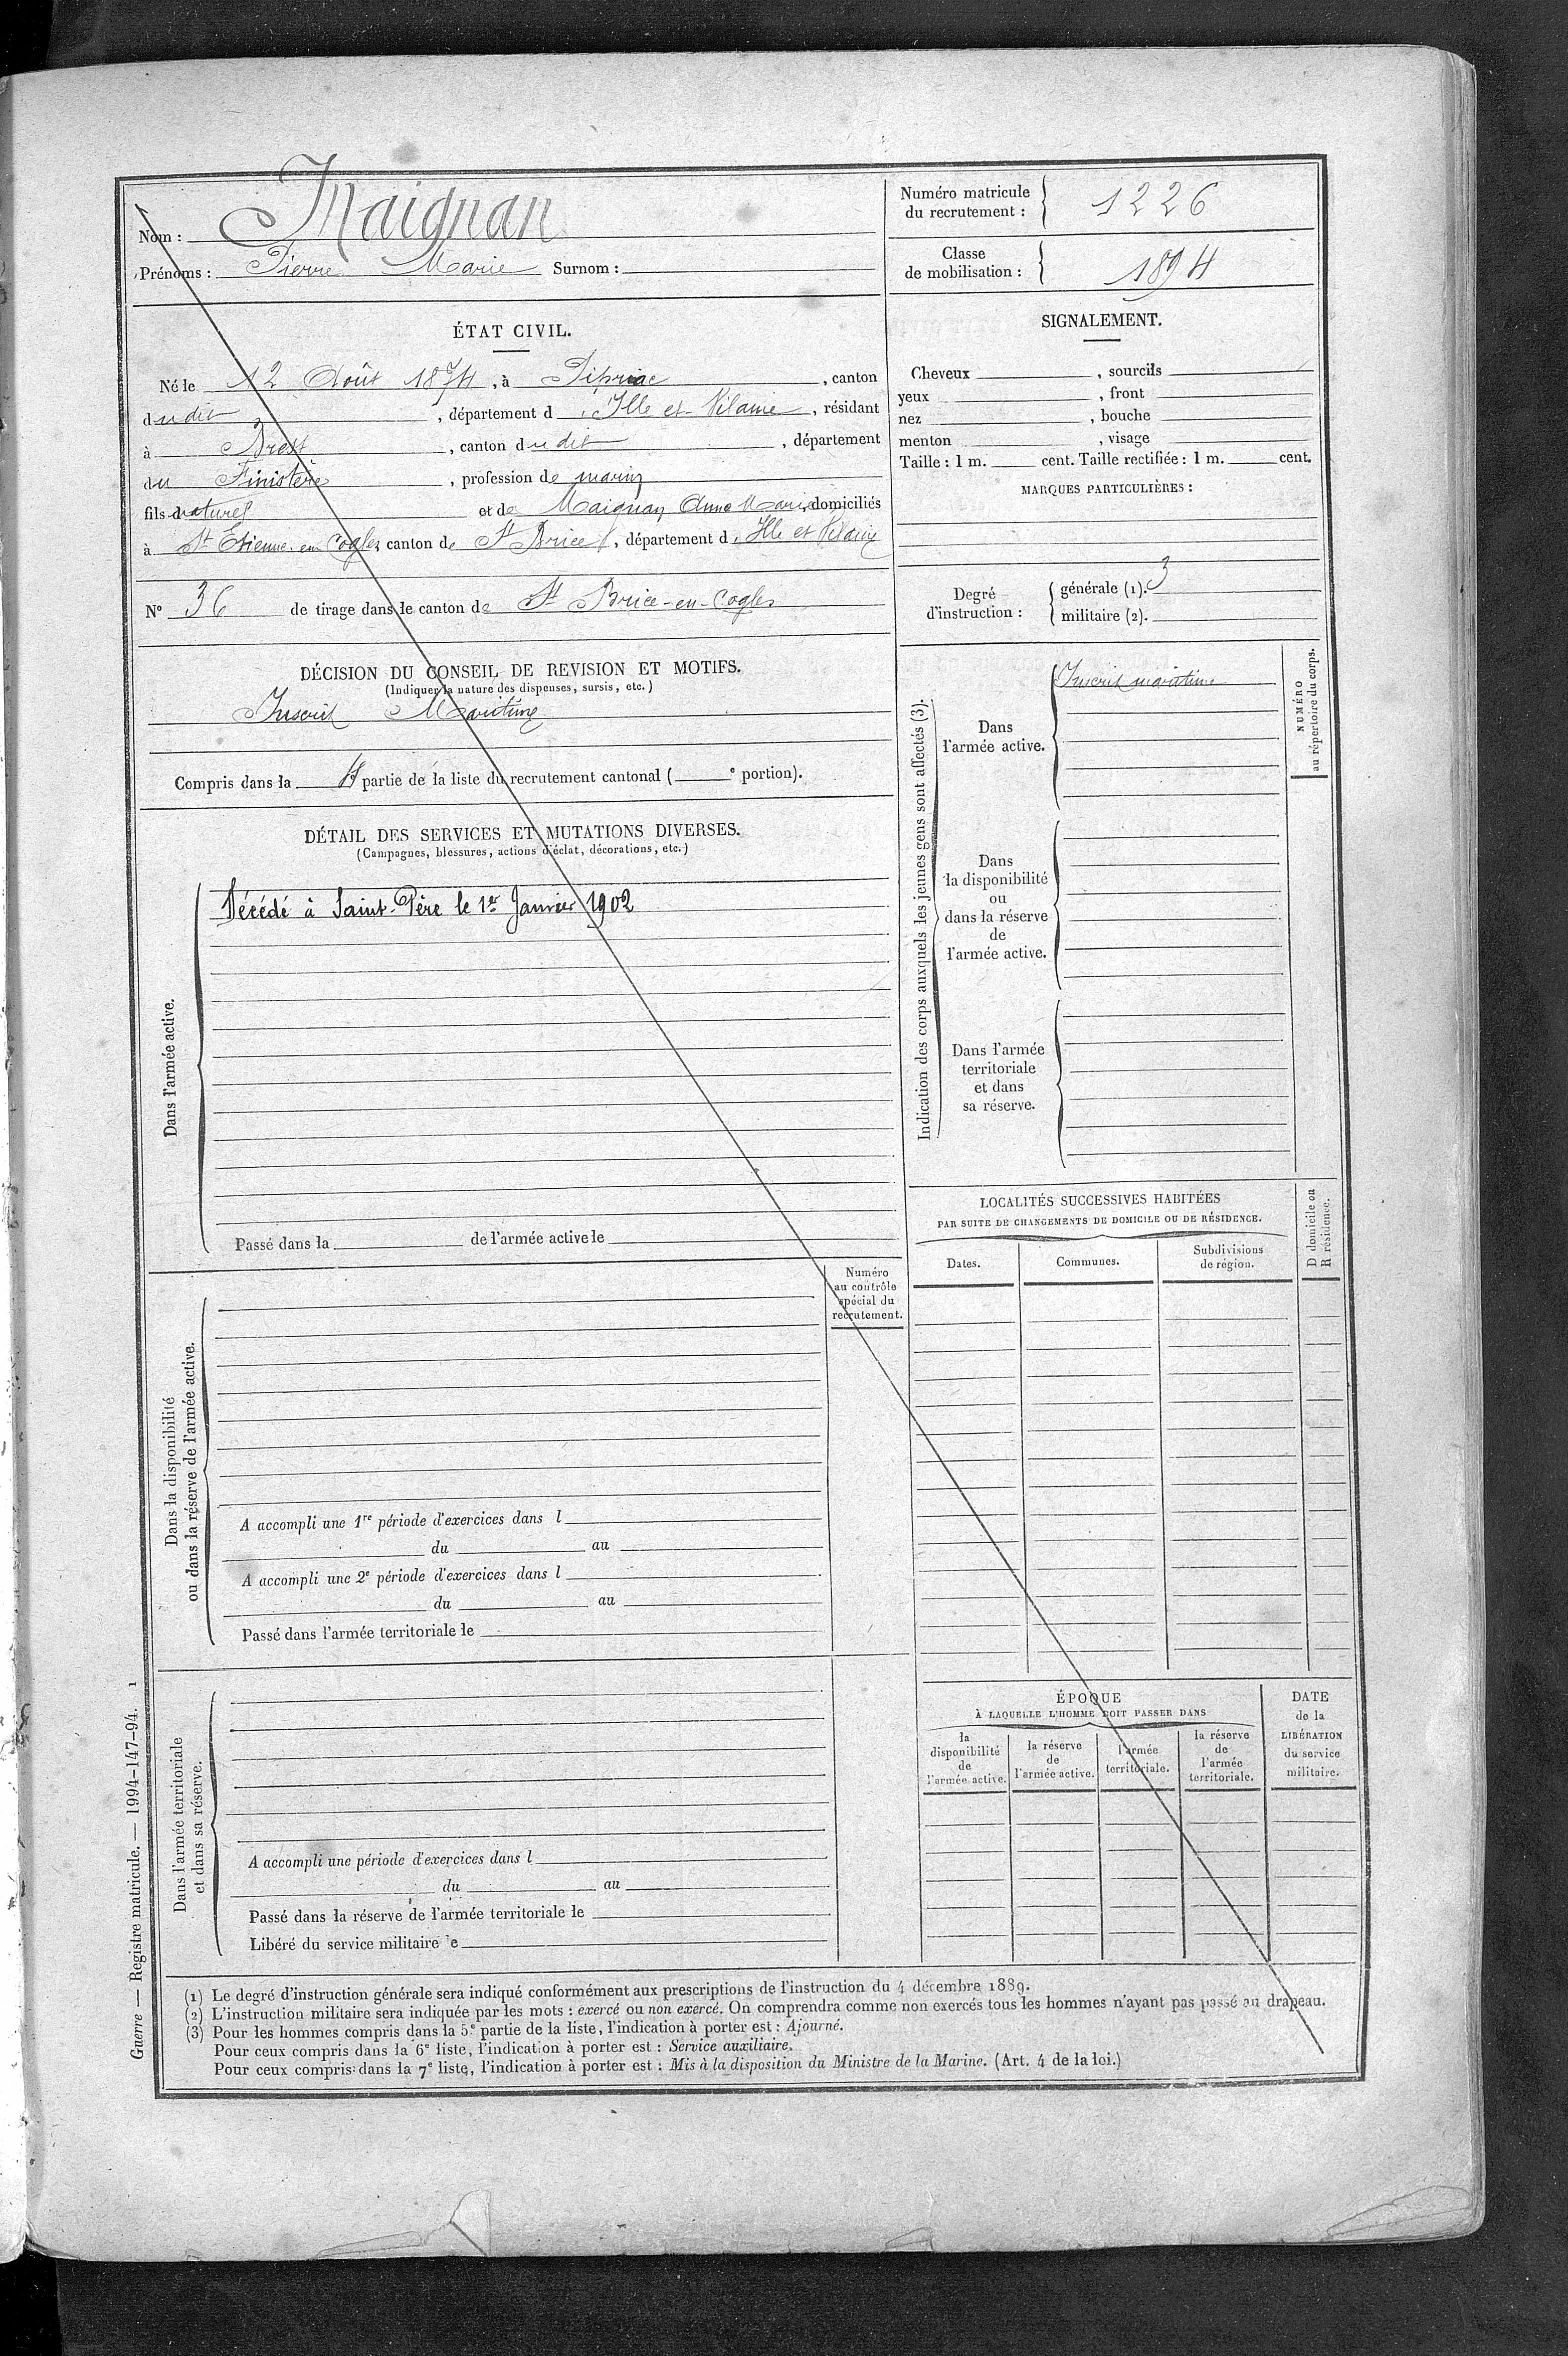 Nom : Maignan
Prénoms : Pierre Marie Surnom :
Numéro matricule
du recrutement : 1226
Classe
de mobilisation : 1894
ÉTAT CIVIL.
Né le 12 Août 1874, à Pipriac, canton
dudit, département d'Ille et Vilaine, résidant
à Brest, canton dudit, département
du Finistère, profession de marin
fils naturel et de Maignan Anne Marie, domiciliés
à St Etienne-en-Cogles canton de St Brice, département d'Ille et Vilaine
N° 36 de tirage dans le canton de St Brice-en-Cogles
DÉCISION DU CONSEIL DE REVISION ET MOTIFS.
(Indiquer la nature des dispenses, sursis, etc.)
Inscrit Maritime
Compris dans la 4 partie de la liste du recrutement cantonal ( e portion).
DÉTAIL DES SERVICES ET MUTATIONS DIVERSES.
(Campagnes, blessures, actions d'éclat, décorations, etc.)
Dans l'armée active.
Décédé à Saint-Père le 1er Janvier 1902
Passé dans la de l'armée active le
Numéro
au contrôle
spécial du
recrutement.
Dans la disponibilité
ou dans la réserve de l'armée active.
A accompli une 1re période d'exercices dans l
du au
A accompli une 2e période d'exercices dans l
du au
Passé dans l'armée territoriale le
Dans l'armée territoriale
et dans sa réserve.
A accompli une période d'exercices dans l
du au
Passé dans la réserve de l'armée territoriale le
Libéré du service militaire le
SIGNALEMENT.
Cheveux , sourcils
yeux , front
nez , bouche
menton , visage
Taille : 1 m. cent. Taille rectifiée : 1 m. cent.
MARQUES PARTICULIÈRES :
Degré
d'instruction :
générale (1). 3
militaire (2).
Indication des corps auxquels les jeunes gens sont affectés (3).
NUMÉRO
au répertoire du corps.
Inscrit maritime
Dans
l'armée active.
Dans
la disponibilité
ou
dans la réserve
de
l'armée active.
Dans l'armée
territoriale
et dans
sa réserve.
LOCALITÉS SUCCESSIVES HABITÉES
PAR SUITE DE CHANGEMENTS DE DOMICILE OU DE RÉSIDENCE.
D domicile ou
R résidence.
Dates.
Communes.
Subdivisions
de région.
ÉPOQUE
À LAQUELLE L'HOMME DOIT PASSER DANS
la
disponibilité
de
l'armée active.
la réserve
de
l'armée active.
l'armée
territoriale.
la réserve
de
l'armée
territoriale.
DATE
de la
LIBÉRATION
du service
militaire.
(1) Le degré d'instruction générale sera indiqué conformément aux prescriptions de l'instruction du 4 décembre 1889.
(2) L'instruction militaire sera indiquée par les mots : exercé ou non exercé. On comprendra comme non exercés tous les hommes n'ayant pas passé au drapeau.
(3) Pour les hommes compris dans la 5e partie de la liste, l'indication à porter est : Ajourné.
Pour ceux compris dans la 6e liste, l'indication à porter est : Service auxiliaire.
Pour ceux compris dans la 7e liste, l'indication à porter est : Mis à la disposition du Ministre de la Marine. (Art. 4 de la loi.)
Guerre — Registre matricule. — 1994-147-94. 1